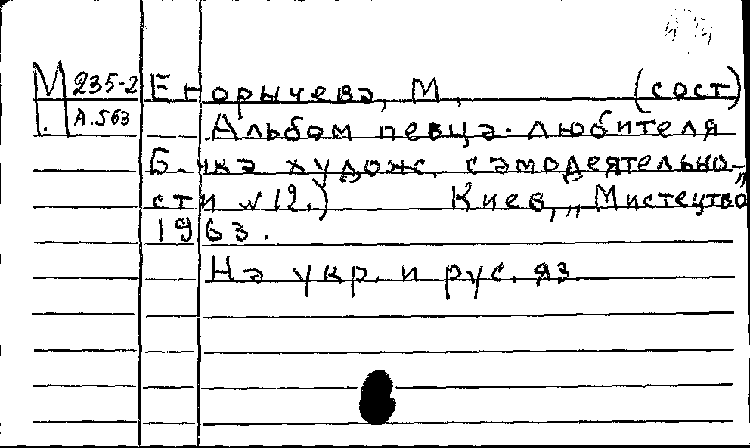 М 235-2 Егорычева, М. (сост)
А.563
Альбом певца-любителя
Б-чка худож. самодеятельно-
сти №12.) Киев, „Мистецтво"
1963.
На укр. и рус. яз.